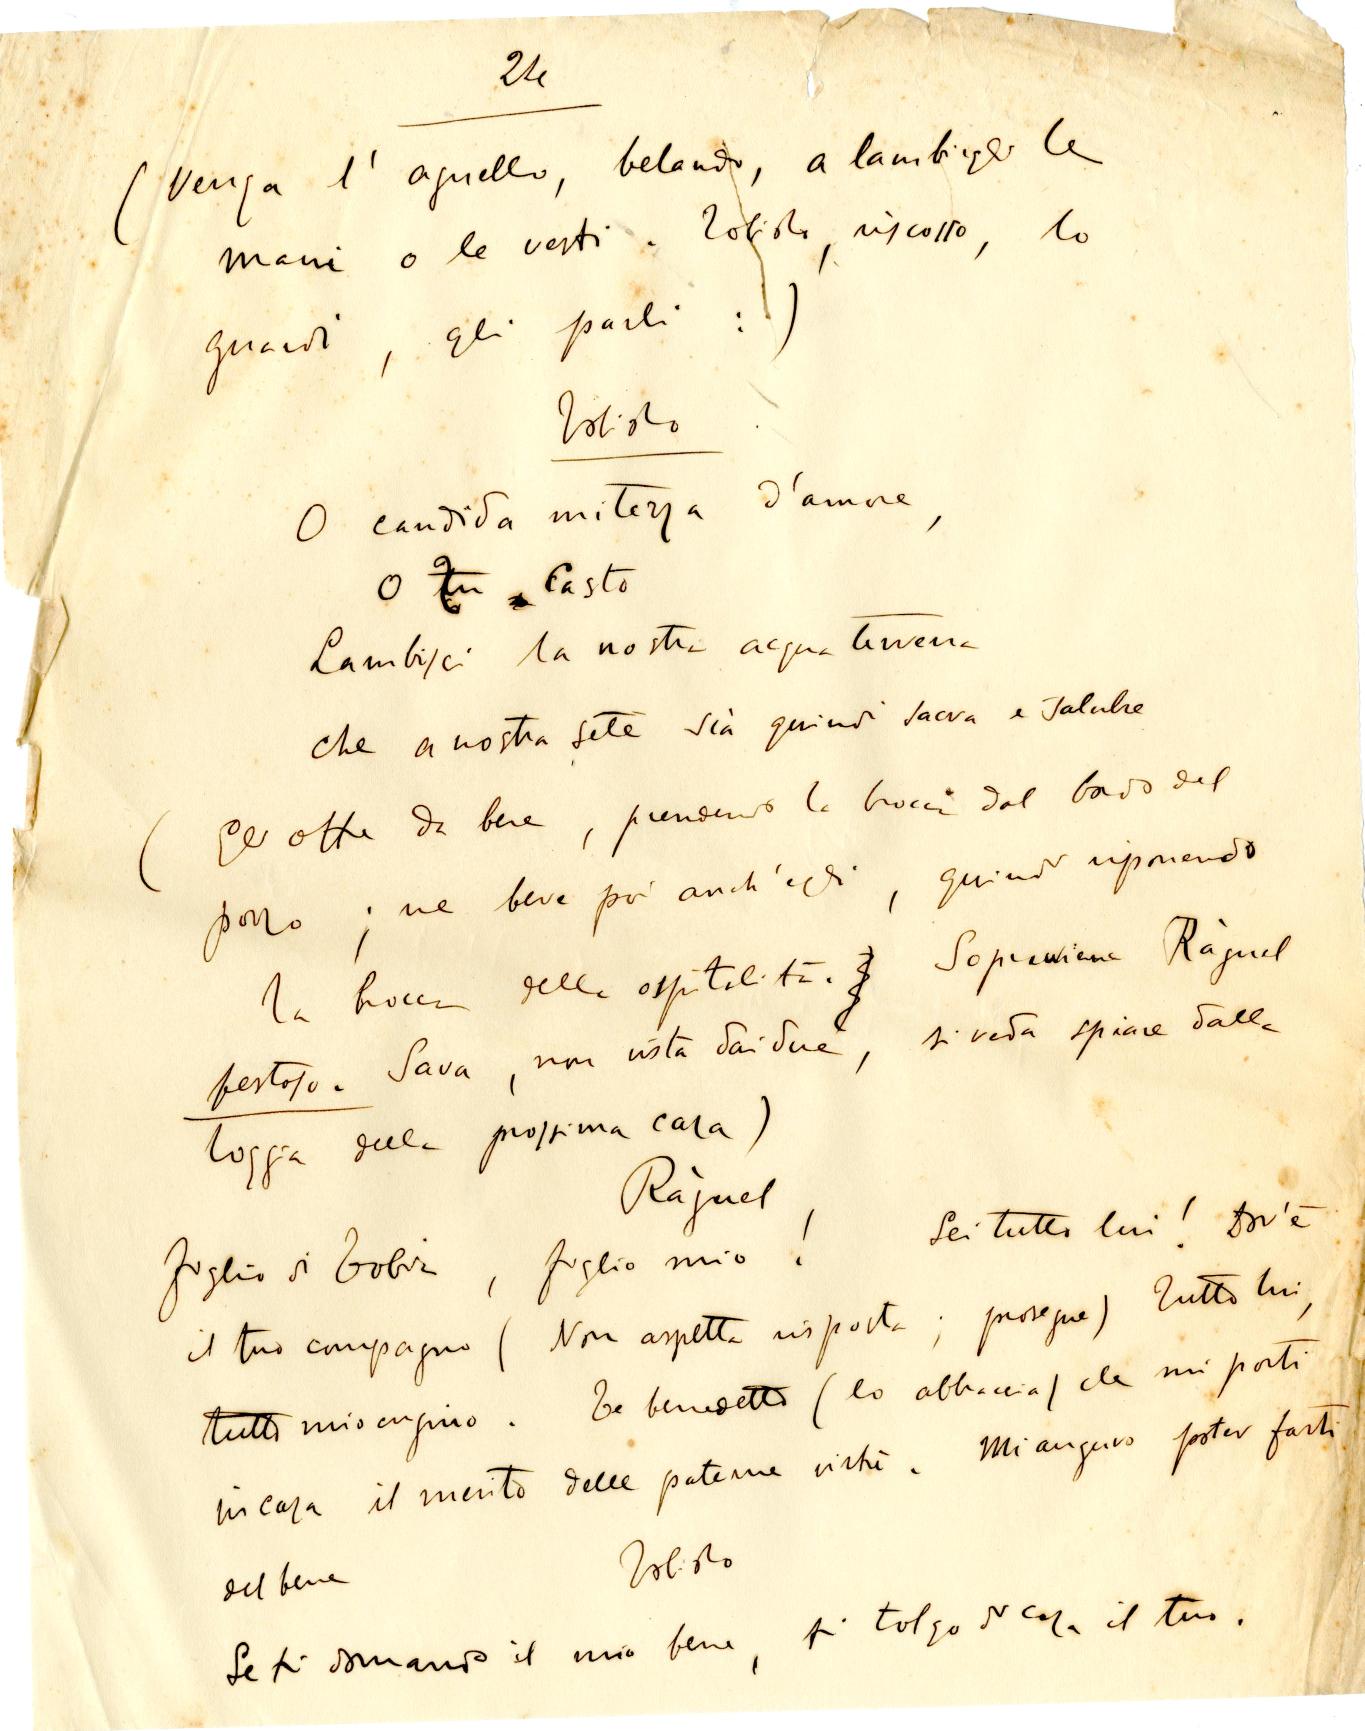 24
(Venga l'agnello, belando, a lambirgli le
mani o le vesti. Tobiolo, riscosso, lo
guardi, gli parli :)
Tobiolo
O candida mitezza d'amore,
O tu casto
Lambisci la nostra acqua terrena
che a nostra sete sia quindi sacra e salubre
(Gli offre da bere, prendendo la brocca dal bordo del
pozzo; ne beve poi anch'egli, quindi riponendo
la brocca della ospitalità. Sopravviene Ràguel
festoso. Sara, non vista dai due, si veda spiare dalla
loggia della prossima casa)
Ràguel
Figlio di Tobia, figlio mio! Sei tutto lui! Dov'è
il tuo compagno (Non aspetta risposta; prosegue) Tutto lui,
tutto mio cugino. Te benedetto (lo abbraccia) che mi porti
in casa il merito delle paterne virtù. Mi auguro poter farti
del bene
Tobiolo
Se ti domando il mio bene, ti tolgo di casa il tuo.